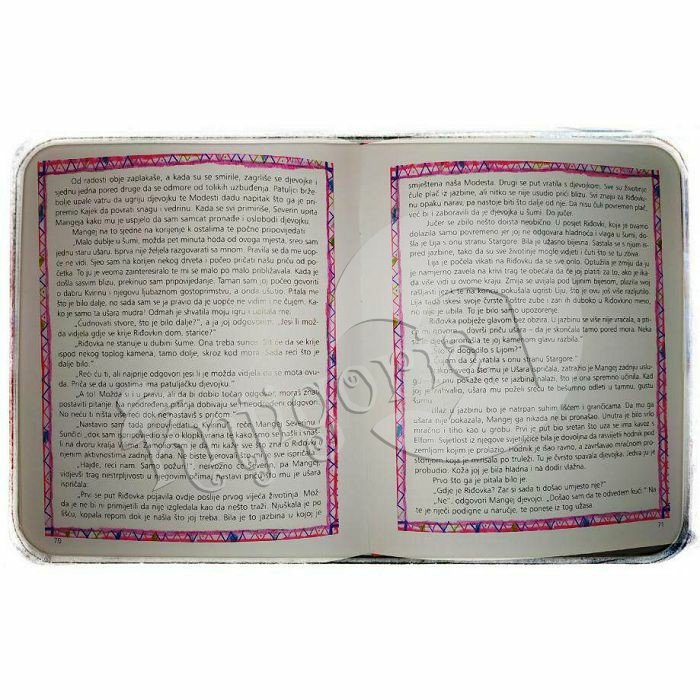 Od radosti obje zaplakaše, a kada su se smirile, zagrliše se djevojke i
sjednu jedna pored druge da se odmore od tolikih uzbuđenja. Patuljci brže-
bolje upale vatru da ugriju djevojku te Modesti dadu napitak što ga je pri-
premio Kajek da povrati snagu i vedrinu. Kada se svi primiriše, Severin upita
Mangeja kako mu je uspjelo da sam samcat pronađe i oslobodi djevojku.
Mangej na to sjedne na korijenje k ostalima te počne pripovijedati:
„Malo dublje u šumi, možda pet minuta hoda od ovoga mjesta, sreo sam
jednu staru ušaru. Isprva nije željela razgovarati sa mnom. Pravila se da me uop-
će ne vidi. Sjeo sam na korijen nekog drveta i počeo pričati našu priču od po-
četka. To ju je veoma zainteresiralo te mi se malo po malo približavala. Kada je
došla sasvim blizu, prekinuo sam pripovijedanje. Taman sam joj počeo govoriti
o dabru Kvirinu i njegovu ljubaznom gostoprimstvu, a onda ušutio. Pitala me
što je bilo dalje, no sada sam se ja pravio da je uopće ne vidim i ne čujem. Ka-
ko je samo ta ušara mudra! Odmah je shvatila moju igru i upitala me:
„Čudnovati stvore, što je bilo dalje?“, a ja joj odgovorim: „Jesi li mož-
da vidjela gdje se krije Riđovkin dom, starice?“
„Riđovka ne stanuje u dubini šume. Ona treba sunce. da se krije
ispod nekog toplog kamena, tamo dolje, skroz kod mora. Sada reci što je
dalje bilo.“
„Reći ću ti, ali najprije odgovori jesi li je možda vidjela da se mota ovu-
da. Priča se da u gostima ima patuljačku djevojku.“
„A to! Možda si i u pravu, ali da bi dobio točan odgovor, moraš znati
postaviti pitanje. Na neodređena pitanja dobivaju se i neodređeni odgovori.
No neću ti ništa više reći dok ne nastaviš s pričom.“
„Nastavio sam tada pripovijedati“, govorio je Mangej Severinu i
Sunčici „dok sam vidio da je sova sve u klopku vrana te kako smo se našli i snaš-
li na dvoru kralja Vrana. Zamolio sam je da mi kaže sve što zna o Riđovki i
njenim aktivnostima zadnjih dana. I evo što mi je ispričala.“
„Hajde, reci nam. Što požuri“, nervozno će Elf, no Mangej,
vidjevši trag nestrpljivosti u njegovim očima, nastavi priču onako kako mu je ušara
ispričala:
„Prvi se put Riđovka pojavila ovdje poslije prvog vijeća životinja. Mož-
da je ne bi ni primijetili da nije izgledala kao da nešto traži. Njuškala je po
lišću, kopala repom dok je našla što joj treba. Bila je to jazbina u kojoj je
70
smještena naša Modesta. Drugi se put vratila s djevojkom. Sve su životinje
čule plač iz jazbine, ali nitko se nije usudio prići blizu. Svi znaju za Riđovki-
nu opaku narav, pa nastoje biti što dalje od nje. Da nisu čuli povremen plač,
već bi i zaboravili da je djevojka u šumi. Do jučer.
Jučer se zbilo nešto doista neobično. U posjet Riđovki, koja je ovamo
dolazila samo povremeno jer joj ne odgovara hladnoća i vlaga u šumi, do-
šla je Lija s onu stranu Stargore. Bila je užasno bijesna. Sastala se s njom is-
pred jazbine, tako da su sve životinje mogle vidjeti i čuti što se tu zbiva.
Lija je počela vikati na Riđovku da se sve orilo. Optužila je zmiju da ju
je namjerno zavela na krivi trag te obećala da će joj platiti za to, ako je ika-
da više vidi u ovome kraju. Zmija se uvijala pod Lijinim bijesom, plazila svoj
rašljasti jezik te na koncu pokušala ugristi Liju, što je ovu još više razljutilo.
Lija tada iskesi svoje čvrste i oštre zube i zari ih duboko u Riđovkino meso,
no nije je ubila. To je bio samo upozorenje.
Riđovka pobježe glavom bez obzira. U jazbinu se više nije vraćala, a pti-
mi govoriše, dovrši priču ušara – da je skončala tamo pored mora. Neka
čudna zvijer zgnječila joj je kamenom glavu razjarivši se.
se dogodilo s Lijom?“
da se vratila s onu stranu Stargore.“
Zahvalivši šemo je Ušara zatražio je Mangej zadnju uslu-
gu: da mu pokaže gdje se jazbina nalazi, što je ona spremno učinila. Kad
joj je zahvalio, ušara mu poželi sreću te bešumno odleti u tamnu, gustu
šumu.
Ulaz u jazbinu bio je natrpan suhim lišćem i grančicama. Da mu ga
ušara nije pokazala, Mangej ga nikada ne bi pronašao. Unutra je bilo vrlo
mračno i tiho kao u grobu. Prvi je put bio sretan što uza se ima kavez s
Elfom. Svjetlost iz njegove svjetiljčice bila je dovoljna da rasvijetli hodnik pod
zemljom kojim je prolazio. Hodnik je išao ravno, a završavao mračnom pro-
storijom koja je mirisala po truleži. Tu je čvrsto spavala djevojka. Jedva ju je
probudio. Koža joj je bila hladna i na dodir vlažna.
Prvo što ga je pitala bilo je:
„Gdje je Riđovka? Zar si sada ti došao umjesto nje?“
„Ne“, odgovori Mangej djevojci. „Došao sam da te odvedem kući.“ Na
te je riječi podigne u naručje, te ponese iz tog užasa.
71
kujporis